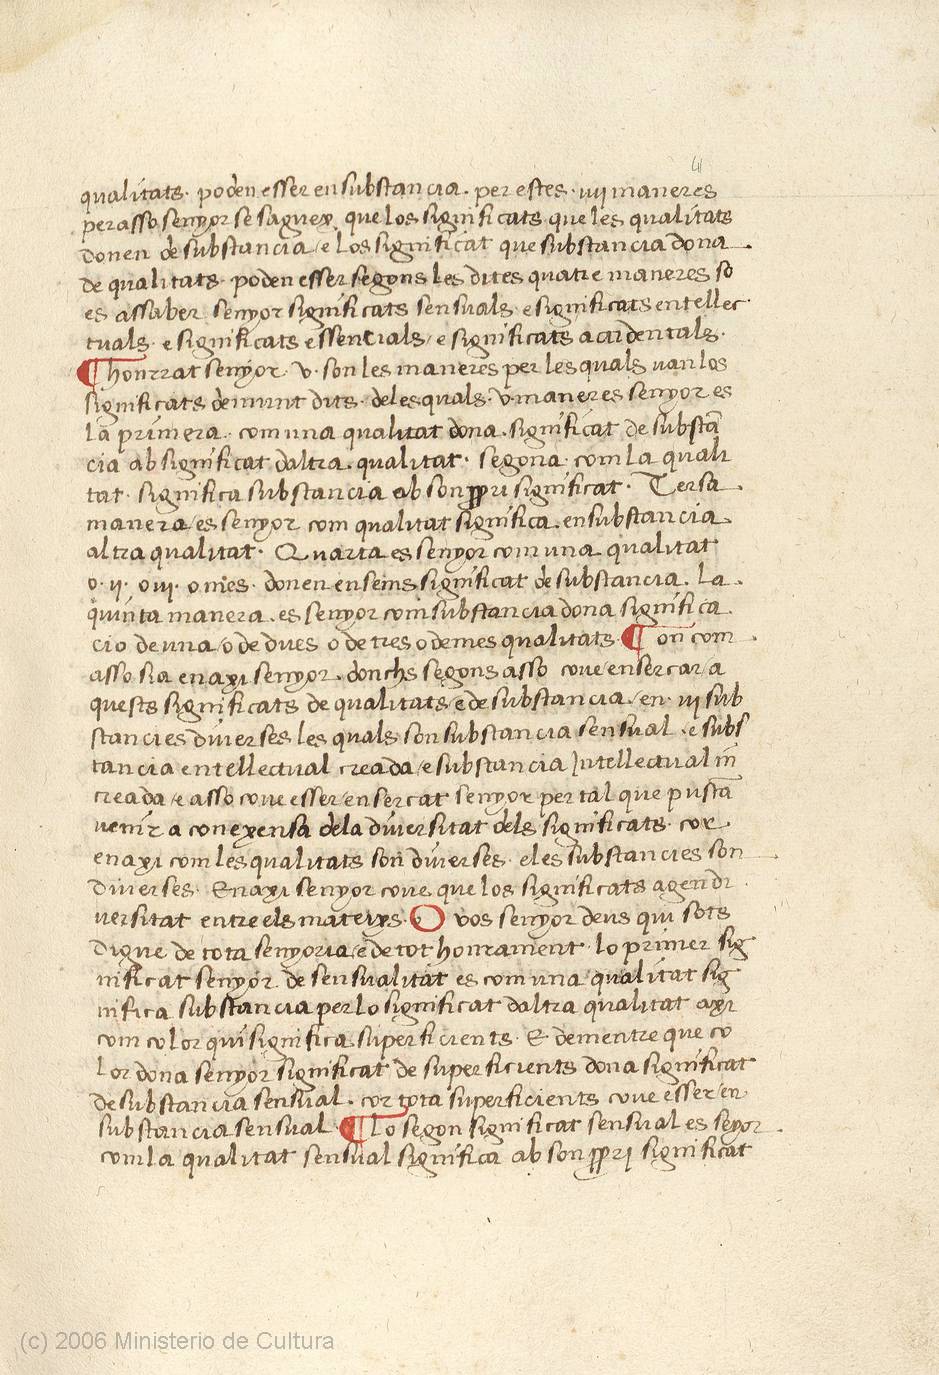 41
qualitats · poden esser en substancia · per estes · iiij maneres
per asso senyor se saguex que los significats que les qualitats
donen de substancia / e los significat que substancia dona ·
de qualitats · poden esser segons les dites quatre maneres so
es assaber senyor significats sensuals · e significats entellec·
tuals · e significats essencials / e significats accidentals ·
¶ honrrat senyor · v · son les maneres per les quals van los
significats demunt dits · de les quals · v · maneres senyor es
la primera · com una qualitat dona · significat de substā
cia ab significat daltra · qualitat · segona · com la quali
tat · significa substancia ab son ppri significat · Tersa ·
manera / es senyor com qualitat significa · en substancia
altra qualitat · Quarta es senyor com una qualitat
o · ij · o iij · o mes · donen ensems significat de substancia · La ·
quinta manera · es senyor com substancia dona significa
cio de una / o de dues o de tres o de mes qualitats · ¶ on com ·
asso sia en axi senyor · donchs segons asso cove en sercar / a
quests significats de qualitats / e de substancia / en · iij sub
stancies diverses les quals son substancia sensual · e subs
tancia entellectual creada / e substancia Intellectual in
creada / e asso cove esser / en sercat senyor per tal que pustā
venir a conexensa de la diversitat dels significats · cor
en axi com les qualitats son diverses · e les substancies son
diverses · En axi senyor cove que los significats agen di ·
versitat entre els mateyxs · O vos senyor deus qui sots
digne de tota senyoria / e de tot honrament · lo primer sig
nificat senyor de sensualitat es com una qualitat sig
nifica substancia per lo significat daltra qualitat axi
com color qui significa superficients · E dementre que co
lor dona senyor significat de superficients dona significat
de substancia sensual · cor tota superficients cove esser en
substancia sensual ¶ Lo segon significat sensual es seyor ·
com la qualitat sensual significa ab son ppri significat
(c) 2006 Ministerio de Cultura